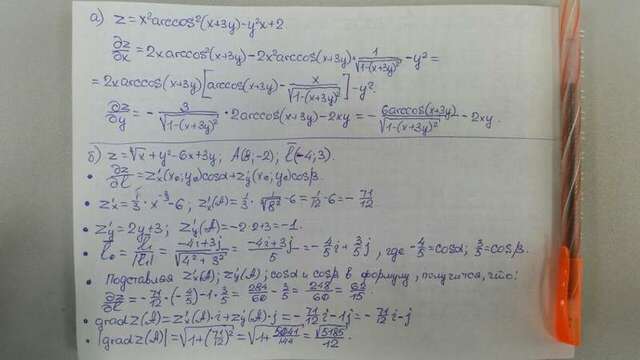 а) z = x²arccos²(x+3y)-y²x+2
∂z/∂x = 2xarccos²(x+3y)-2x²arccos(x+3y)·1/√(1-(x+3y)²) -y² =
= 2xarccos(x+3y)[arccos(x+3y)-x/√(1-(x+3y)²)]-y².
∂z/∂y = -3/√(1-(x+3y)²) · 2arccos(x+3y)-2xy = -6arccos(x+3y)/√(1-(x+3y)²) -2xy.
б) z=∛x+y²-6x+3y; A(8;-2); l̄(-4;3).
• ∂z/∂l = z'x(x₀;y₀)cosα+z'y(x₀;y₀)cosβ.
• z'x=1/3·x^(-2/3)-6; z'x(A)=1/3·1/∛8²-6=1/12-6=-71/12.
• z'y=2y+3; z'y(A)=-2·2+3=-1.
• l̄₀=l̄₁/|l̄₁|=(-4i+3j)/√(4²+3²)=(-4i+3j)/5=-4/5i+3/5j, где -4/5=cosα; 3/5=cosβ.
• Подставляя z'x(A); z'y(A); cosα и cosβ в формулу, получится, что:
∂z/∂l=-71/12·(-4/5)-1·3/5=284/60-3/5=248/60=62/15.
• gradz(A)=z'x(A)·i+z'y(A)·j=-71/12i-1j=-71/12i-j
• |gradz(A)|=√(1+(71/12)²)=√(1+5041/144)=√5185/12.